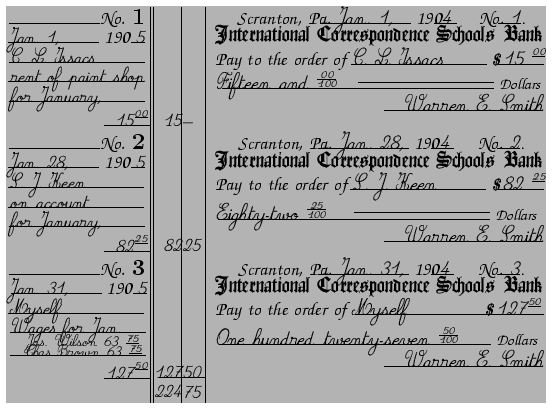 No. 1
Jan. 1, 1905
C L Issacs
rent of paint shop
for January,
15 00
15—
Scranton, Pa. Jan. 1, 1904 No. 1.
International Correspondence Schools Bank
Pay to the order of C. L. Issacs $15 00
Fifteen and 00/100 Dollars
Warren E Smith
No. 2
Jan 28, 1905
S J Keen
on account
for January,
82 25
82 25
Scranton, Pa. Jan 28, 1904 No. 2.
International Correspondence Schools Bank
Pay to the order of S. J Keen $82 25
Eighty-two 25/100 Dollars
Warren E Smith
No. 3
Jan. 31, 1905
Myself
Wages for Jan
Jas. Wilson 63 75
Chas Brown 63 75
127 50
127 50
224 75
Scranton, Pa. Jan. 31, 1904 No. 3.
International Correspondence Schools Bank
Pay to the order of Myself $127 50
One hundred twenty-seven 50/100 Dollars
Warren E Smith